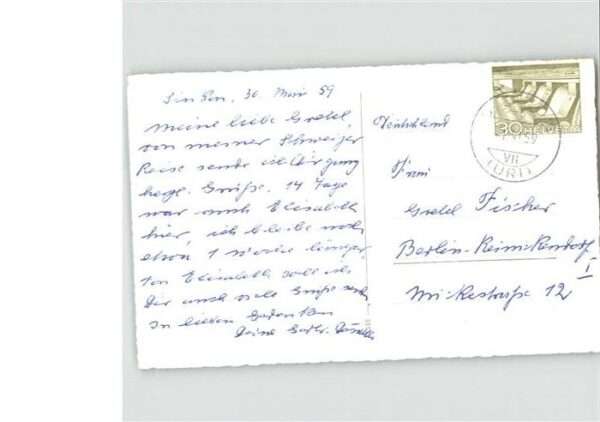 30. Mai 59
Meine liebe Gretel,
von meiner Schweizer
Reise sende ich Dir ganz
herzl. Grüße. 14 Tage
war auch Elisabeth
hier, ich bleibe noch
etwa 1 Woche länger.
Von Elisabeth soll ich
Dir auch viele Grüße
In lieben Gedanken
Deine
Deutschland
Frau
Gretel Fischer
Berlin-Reinickendorf
I
12
30 HELVETIA
59
VII
(URI)